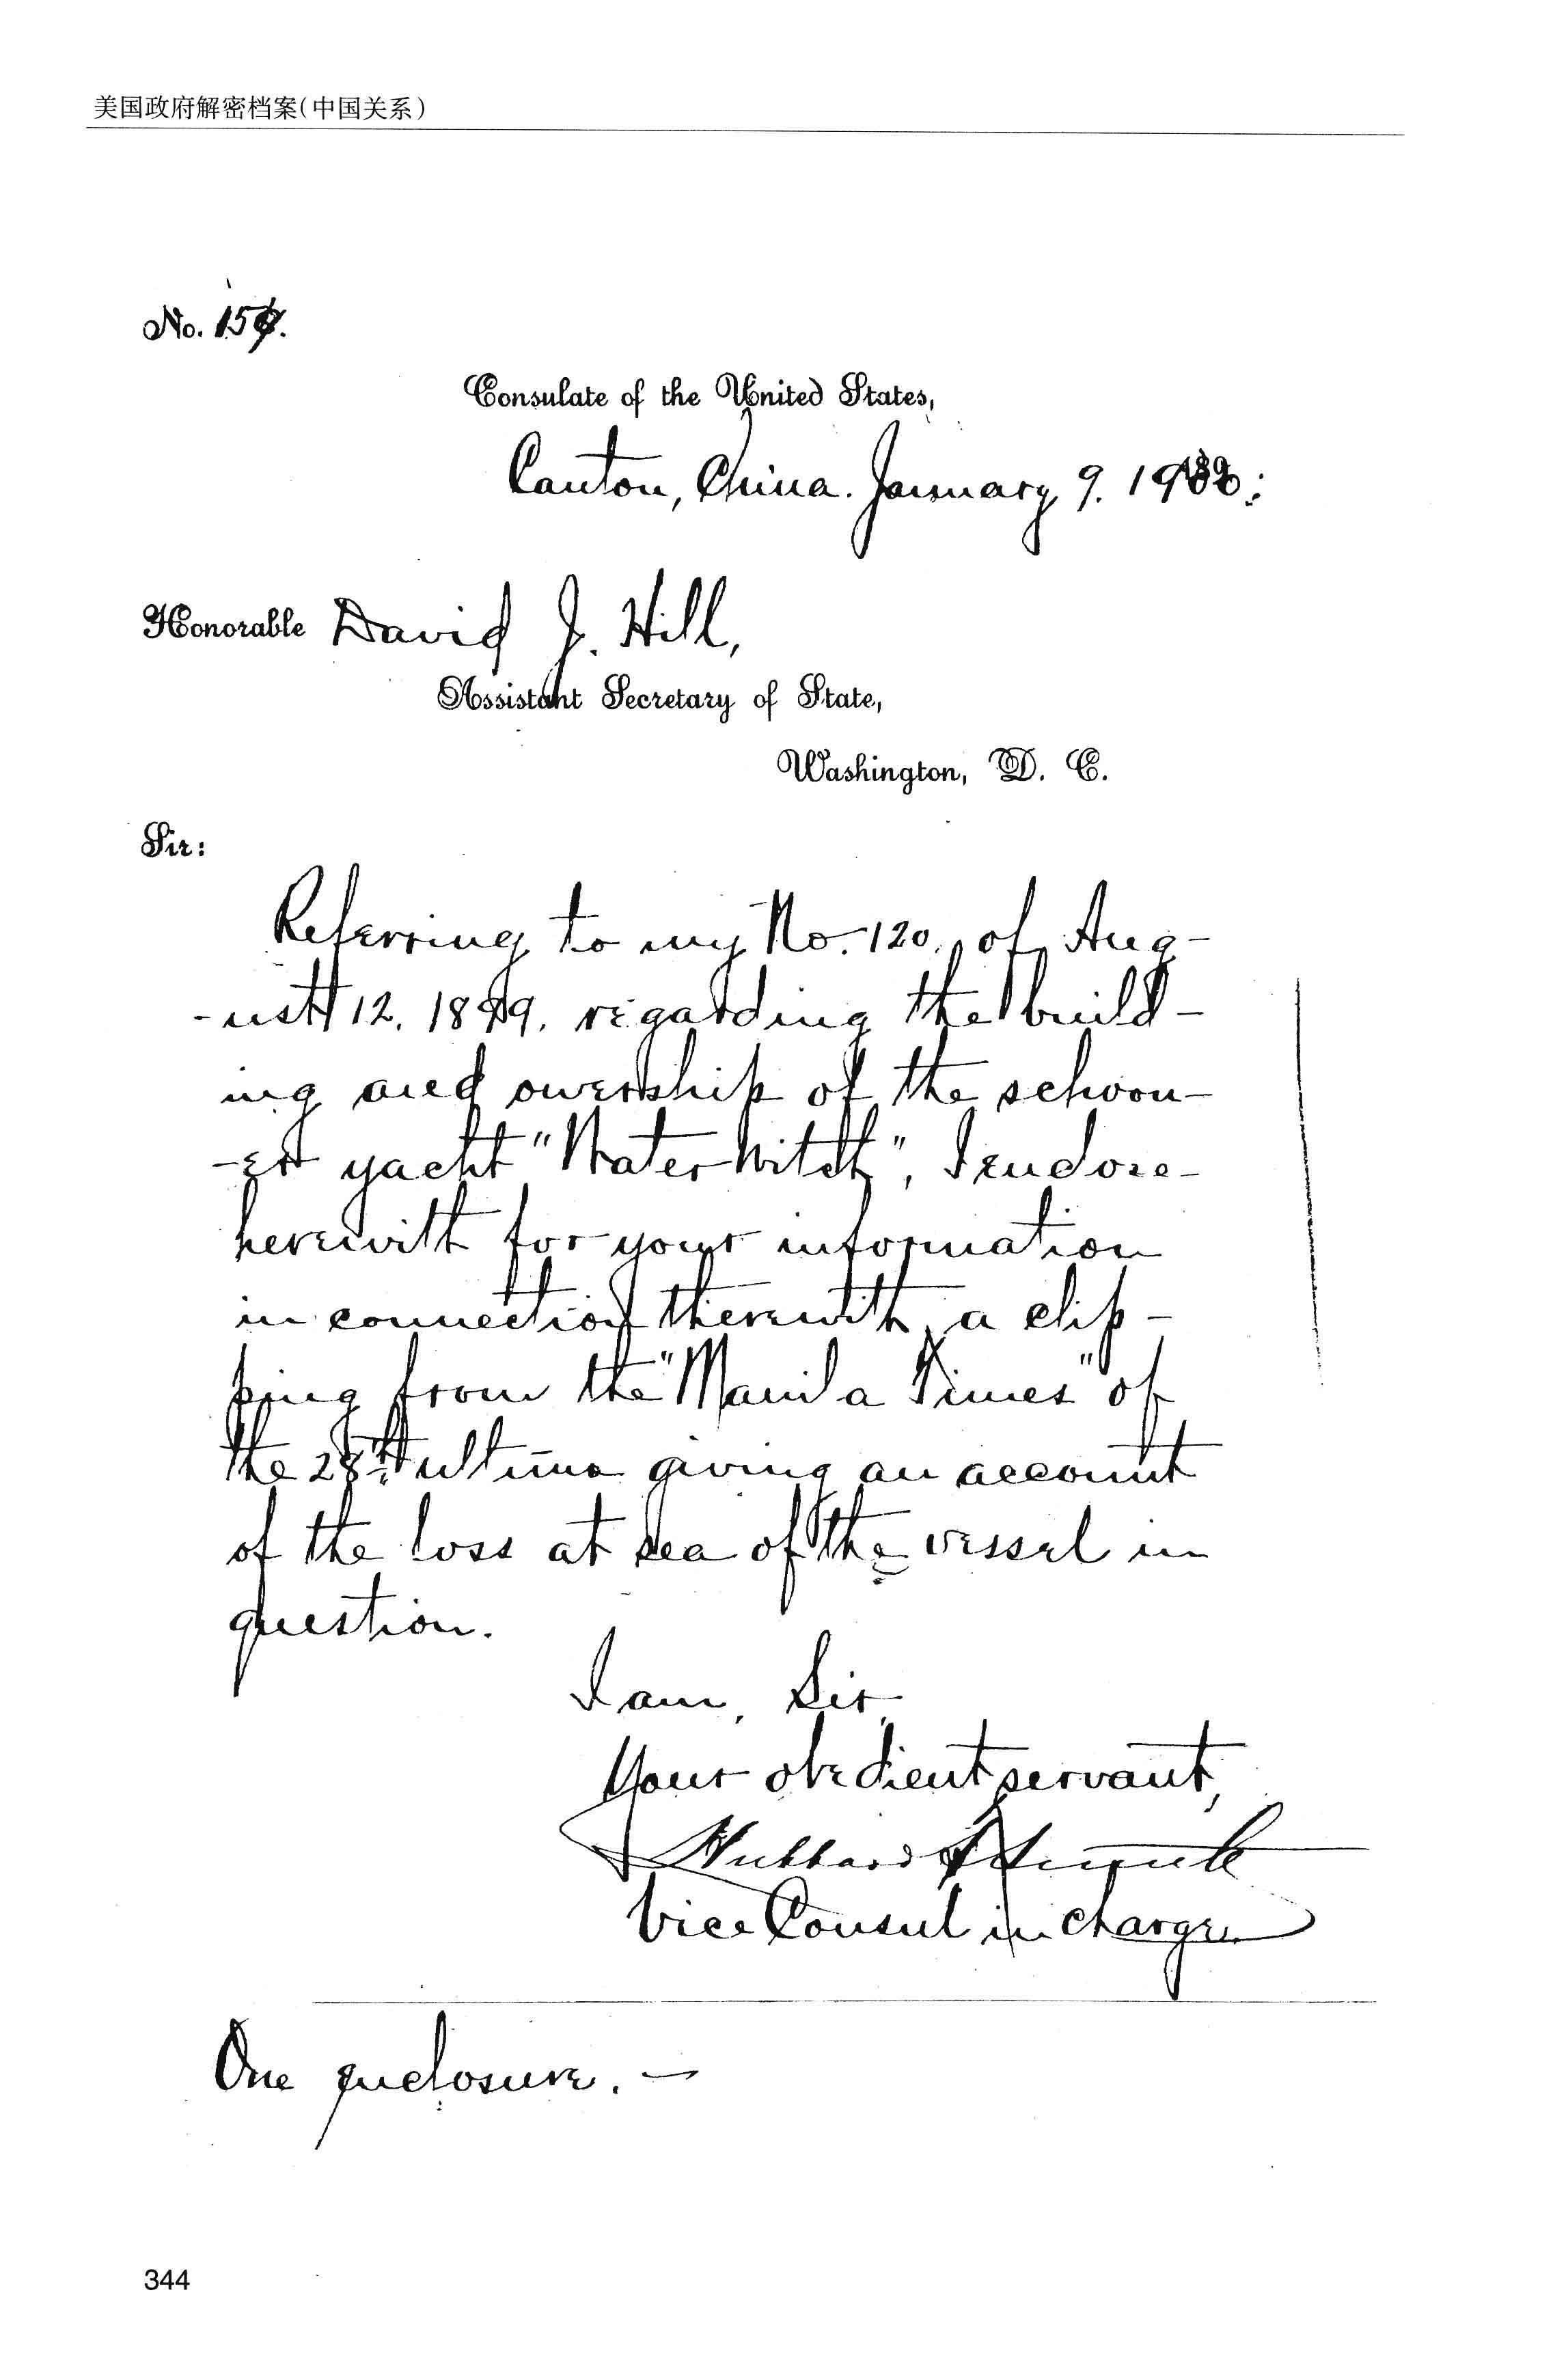 美国政府解密档案(中国关系)
No. 154.
Consulate of the United States,
Canton, China. January 9. 
Honorable David J. Hill,
Assistant Secretary of State,
Washington, D. C.
Sir:
Referring to my No. 120, of Aug-
-ust 12. 1899. regarding the build-
ing and ownership of the schoon-
-er yacht "Water Witch", I enclose
herewith for your information
in connection therewith, a clip-
ping from the "Manila Times" of
the 28th ultimo giving an account
of the loss at sea of the vessel in
question.
I am, Sir,
Your obedient servant,
Hubbard
Vice Consul in charge.
One enclosure. —
344